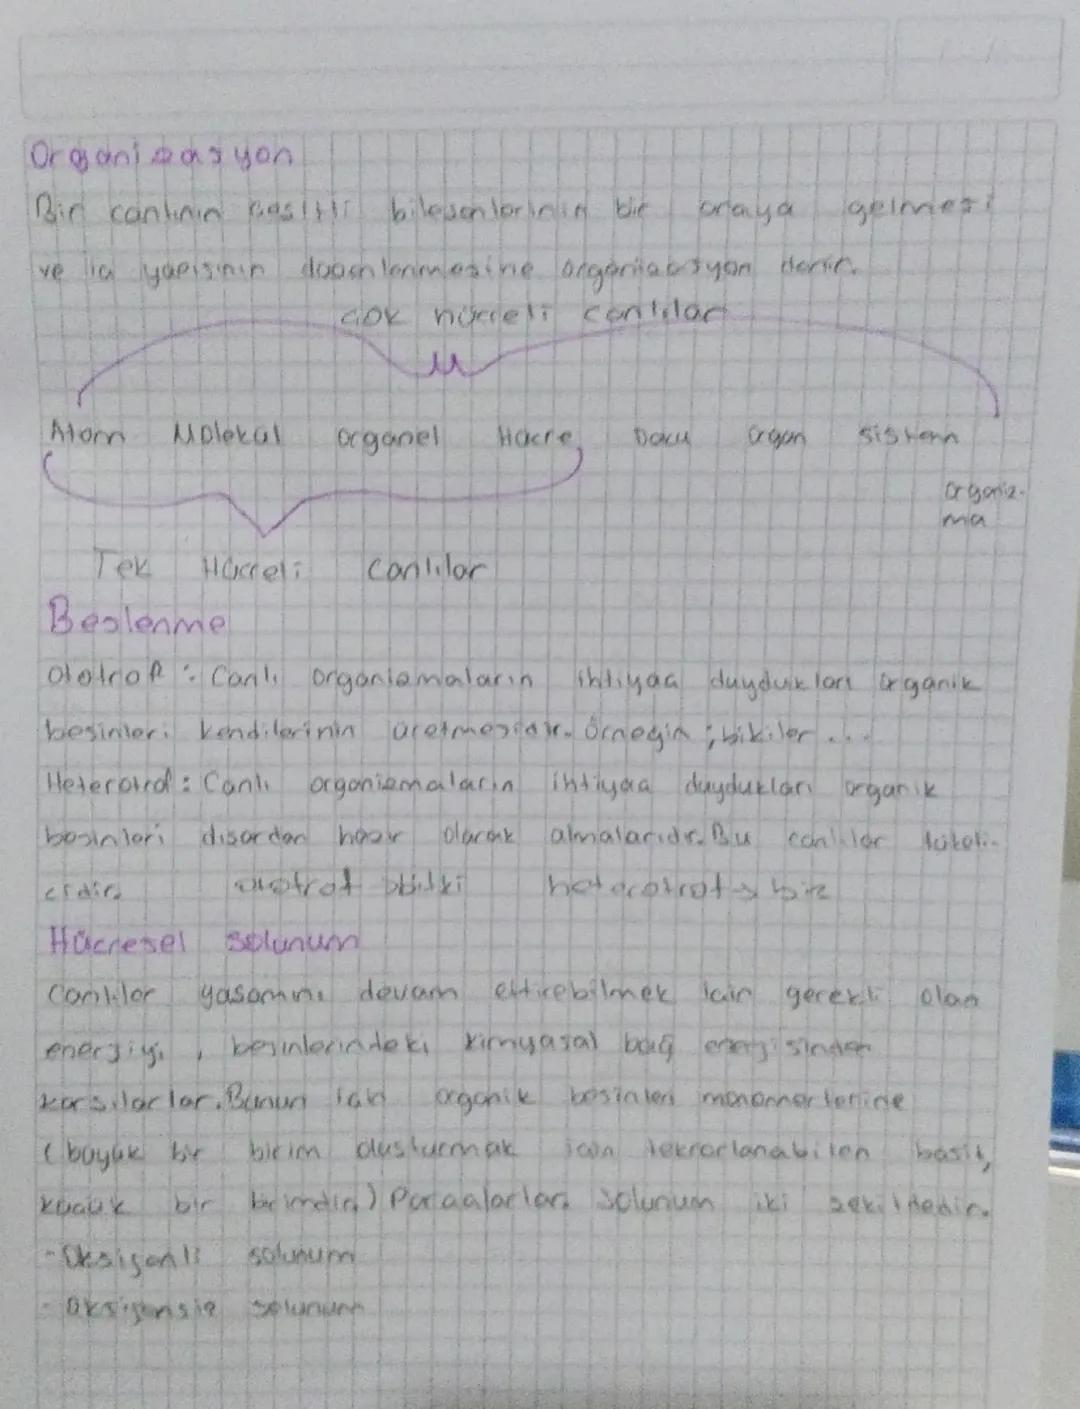 Organizasyon
Bir canlının çeşitli bileşenlerinin bir araya gelmesi
ve iç yapısının düzenlenmesine organizasyon denir.
Çok hücreli canlılar
Atom Molekül organel Hücre Doku organ sistem
organiz-
ma
Tek Hücreli canlılar
Beslenme
Ototrof : Canlı organizmaların ihtiyaç duydukları organik
besinleri kendilerinin üretmesidir. Örneğin ; bitkiler ...
Heterotrof : Canlı organizmaların ihtiyaç duydukları organik
besinleri dışardan hazır olarak almalarıdır. Bu canlılar tüketi-
cidir. ototrof bitki heterotrof → biz
Hücresel solunum
Canlılar yaşamını devam ettirebilmek için gerekli olan
enerjiyi , besinlerindeki kimyasal bağ enerjisinden
karşılarlar. Bunun için organik besinleri monomerlerine
( büyük bir birim oluşturmak için tekrarlanabilen basit,
küçük bir birimdir. ) Parçalarlar. Solunum iki şekildedir.
- Oksijenli solunum
- Oksijensiz solunum